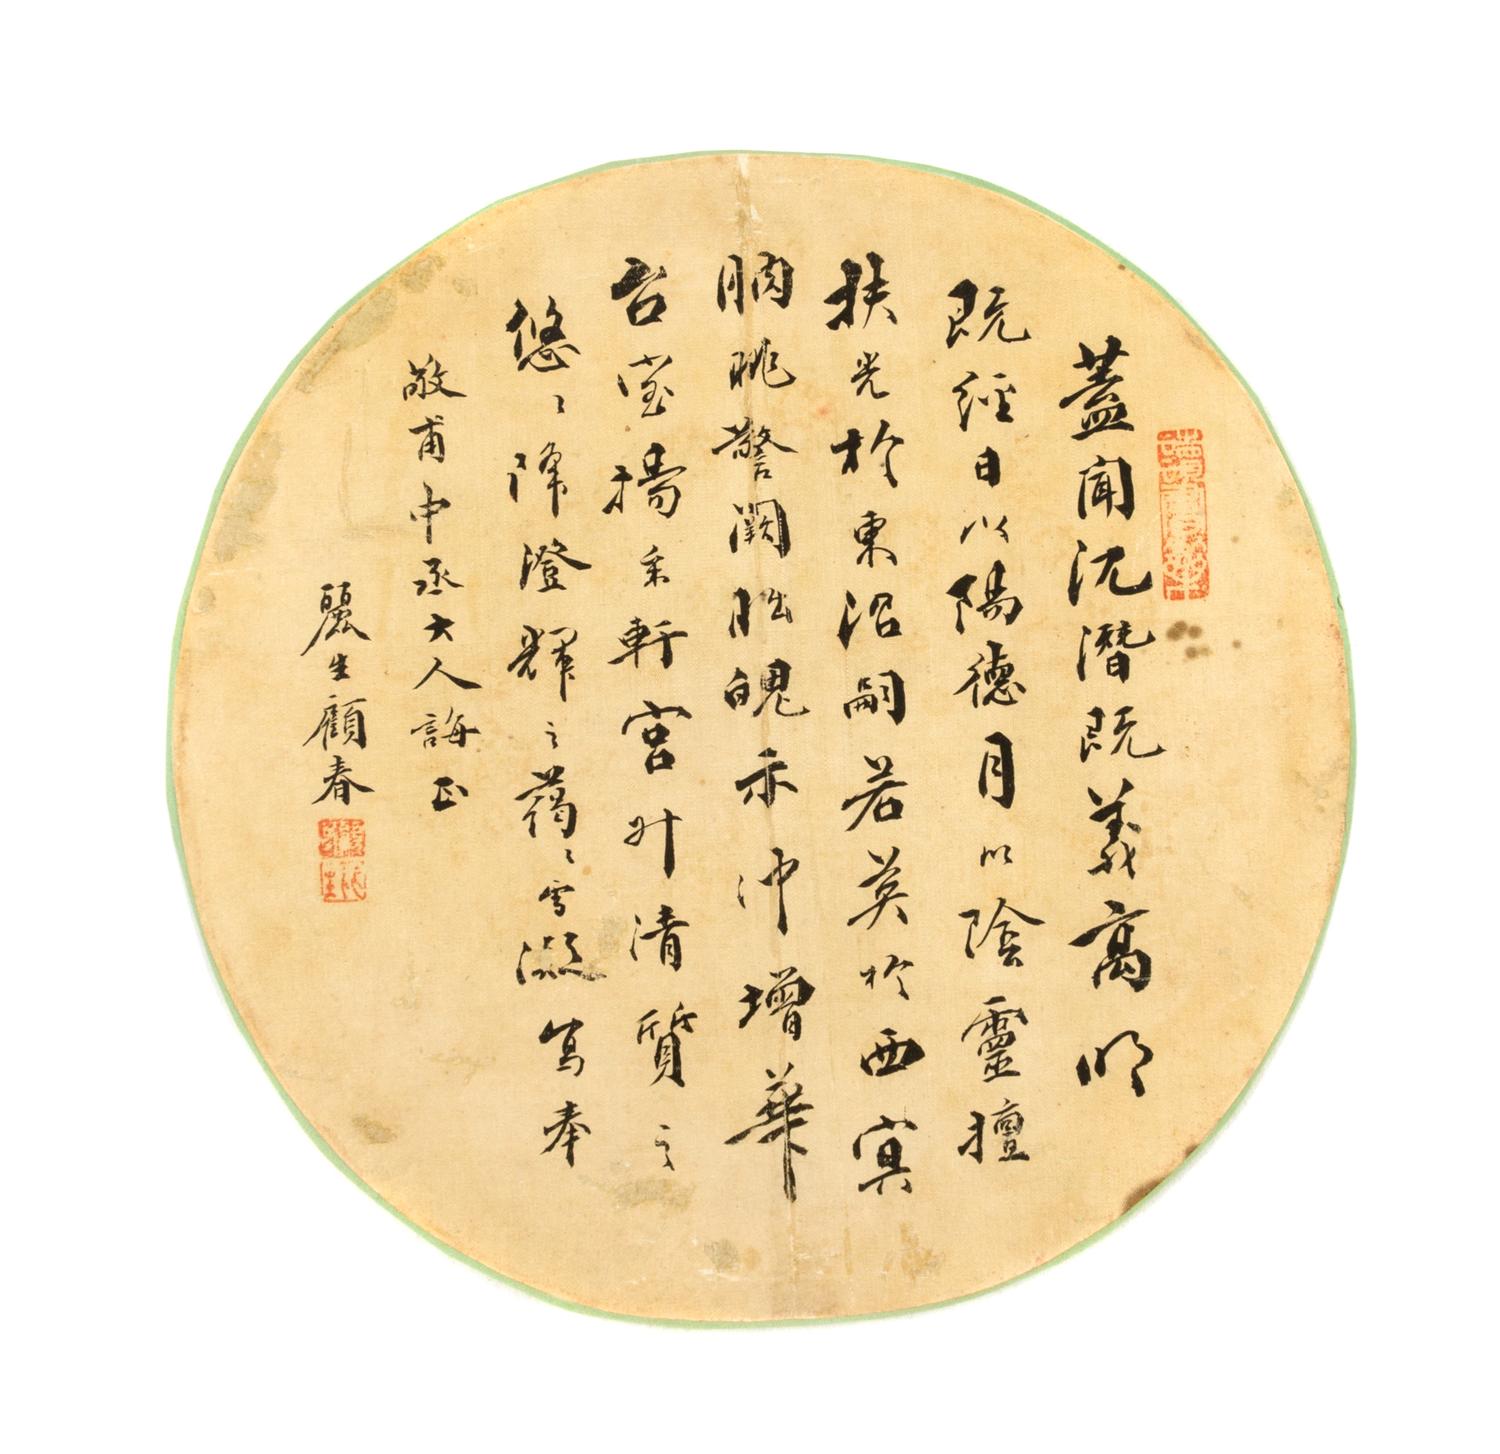 蓋聞沉潛既義高明
既經日以陽德月以陰靈擅
扶光於東沼嗣若英於西冥
朒眺警闕朏魄示沖增華
台室揚采軒宮升清質之
悠〻降澄輝之藹〻雪凝寫奉
敬甫中丞大人誨正
麗生顧春